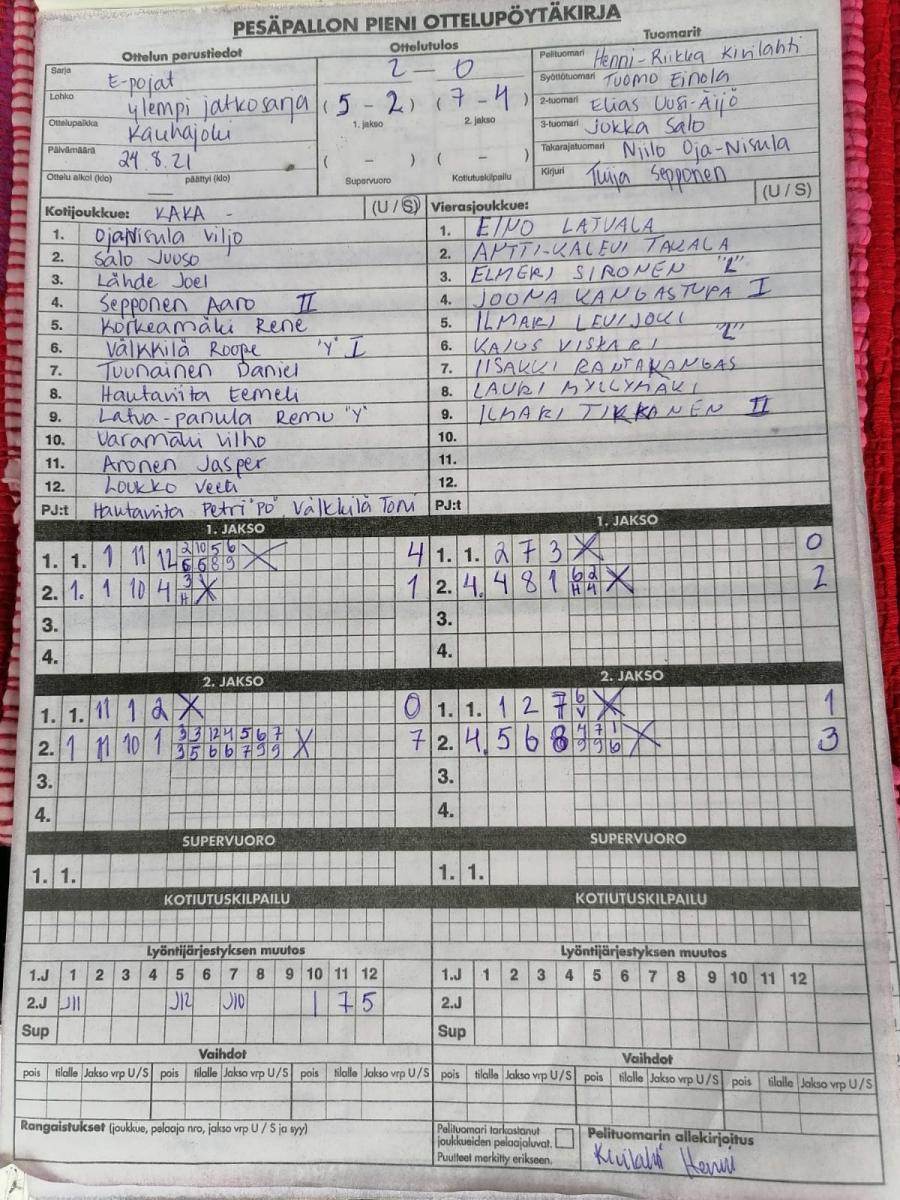 PESÄPALLON PIENI OTTELUPÖYTÄKIRJA
Ottelun perustiedot
Sarja E-pojat
Lohko ylempi jatkosarja
Ottelupaikka Kauhajoki
Päivämäärä 24.8.21
Ottelu alkoi (klo) päättyi (klo)
Ottelutulos
2 – 0
( 5 - 2 ) ( 7 - 4 )
1. jakso 2. jakso
( – ) ( – )
Supervuoro Kotiutuskilpailu
Tuomarit
Pelituomari Henni-Riikka Kivilahti
Syöttötuomari Tuomo Einola
2-tuomari Elias Uusi-Äijö
3-tuomari Jukka Salo
Takarajatuomari Niilo Oja-Nisula
Kirjuri Tuija Sepponen
Kotijoukkue: KAKA - (U / S)
1. OjaNisula Viljo
2. Salo Juuso
3. Lähde Joel
4. Sepponen Aaro II
5. Korkeamäki Rene
6. Välkkilä Roope "Y" I
7. Tuunainen Daniel
8. Hautaviita Eemeli
9. Latva-panula Remu "Y"
10. Varamäki Vilho
11. Aronen Jasper
12. Loukko Veeti
PJ:t Hautaviita Petri "PO" Välkkilä Toni
Vierasjoukkue: (U / S)
1. EINO LATVALA
2. ANTTI-KALEVI TAKALA
3. ELMERI SIRONEN "L"
4. JOONA KANGASTUPA I
5. ILMARI LEVIJOKI
6. KAIUS VISKARI "L"
7. IISAKKI RANTAKANGAS
8. LAURI MYLLYMÄKI
9. ILMARI TIKKANEN II
10.
11.
12.
PJ:t
1. JAKSO
1. 1. 1 11 12 2 10 5 6 X 4
6 6 8 9
2. 1. 1 10 4 3 X 1
H
3.
4.
1. JAKSO
1. 1. 2 7 3 X 0
2. 4. 4 8 1 6 2 X 2
H 4
3.
4.
2. JAKSO
1. 1. 11 1 2 X 0
2. 1 11 10 1 3 3 12 4 5 6 7 X 7
3 5 6 6 7 9 9
3.
4.
2. JAKSO
1. 1. 1 2 7 6 X 1
V
2. 4. 5 6 8 4 7 1 X 3
9 9 6
3.
4.
SUPERVUORO
1. 1.
SUPERVUORO
1. 1.
KOTIUTUSKILPAILU
KOTIUTUSKILPAILU
Lyöntijärjestyksen muutos
1.J 1 2 3 4 5 6 7 8 9 10 11 12
2.J J11 J12 J10 1 7 5
Sup
Lyöntijärjestyksen muutos
1.J 1 2 3 4 5 6 7 8 9 10 11 12
2.J
Sup
Vaihdot
pois tilalle Jakso vrp U/S pois tilalle Jakso vrp U/S pois tilalle Jakso vrp U/S
Vaihdot
pois tilalle Jakso vrp U/S pois tilalle Jakso vrp U/S pois tilalle Jakso vrp U/S
Rangaistukset (joukkue, pelaaja nro, jakso vrp U / S ja syy)
Pelituomari tarkastanut
joukkueiden pelaajaluvat.
Puutteet merkitty erikseen.
Pelituomarin allekirjoitus
Kivilahti Henni